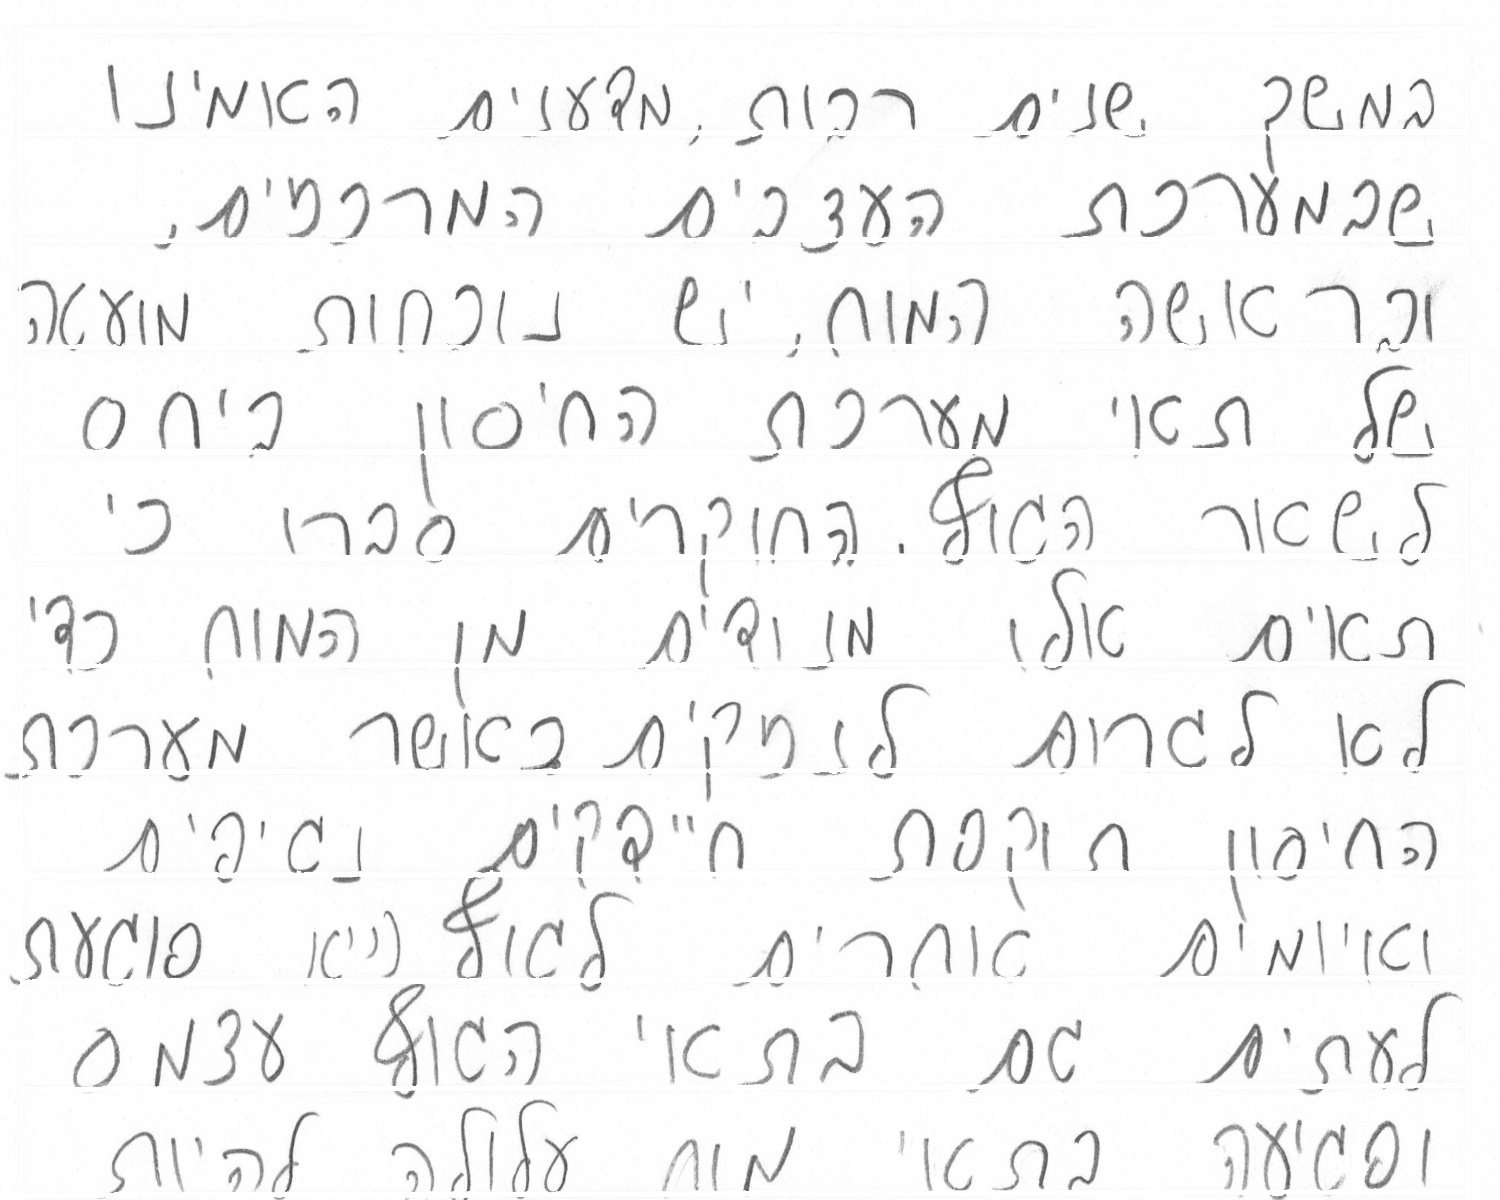 במשך שנים רבות, מדענים האמינו
שבמערכת העצבים המרכזים,
ובראשה המוח, יש נוכחות מועטה
של תאי מערכת החיסון ביחס
לשאר הגוף. החוקרים סברו כי
תאים אלו מנודים מן המוח כדי
לא לגרום לנזקים כאשר מערכת
החיסון תוקפת חיידקים נגיפים
ואיומים אחרים לגוף היא פוגעת
לעתים גם בתאי הגוף עצמם
ופגיעה בתאי מוח עלולה להיות